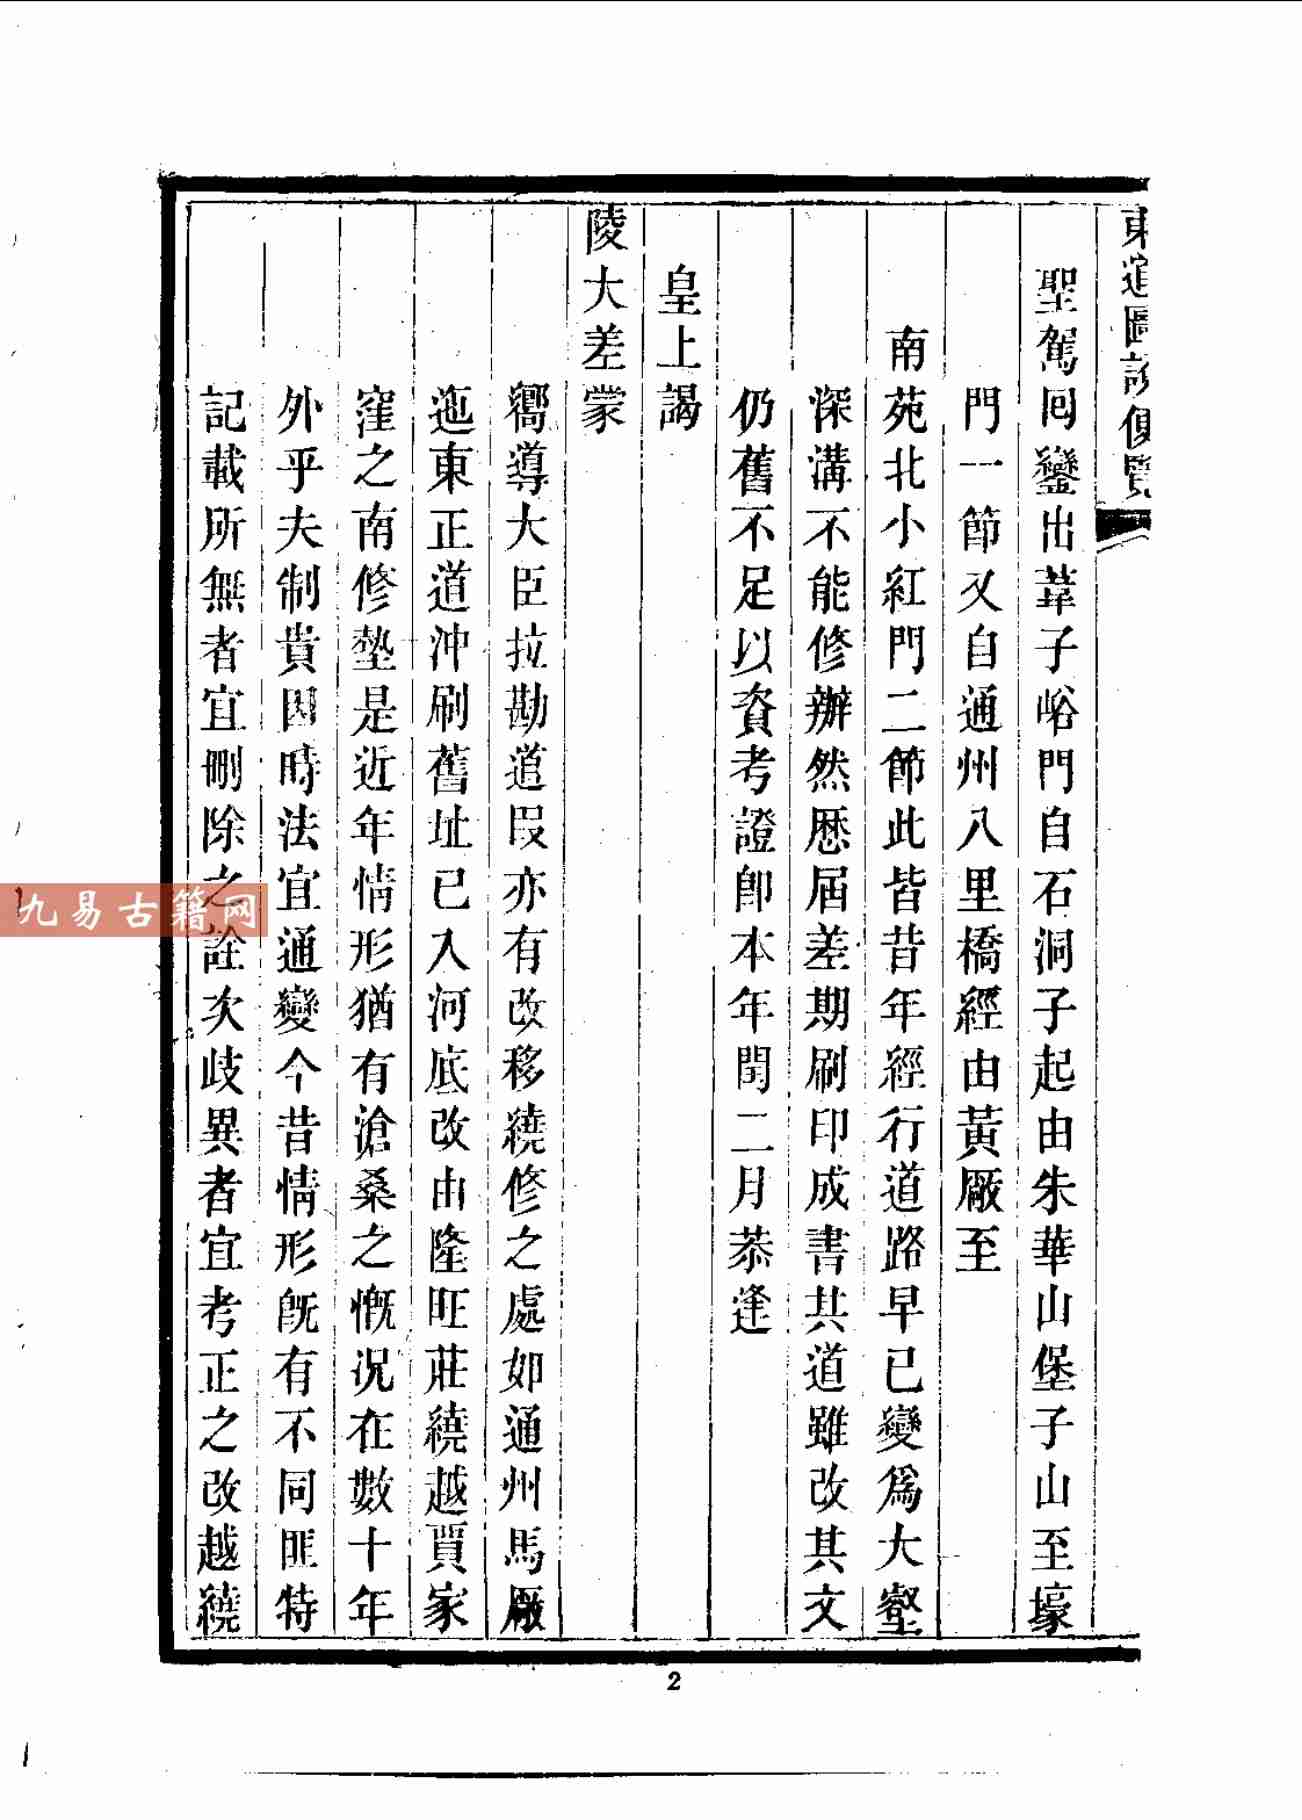 東道圖說便覽
聖駕回鑾出葦子峪門自石洞子起由朱華山堡子山至壕
門一節又自通州八里橋經由黃厰至
南苑北小紅門二節此皆昔年經行道路早已變爲大壑
深溝不能修辦然歷屆差期刷印成書其道雖改其文
仍舊不足以資考證卽本年閏二月恭逢
皇上謁
陵大差蒙
嚮導大臣拉勘道叚亦有改移繞修之處如通州馬厰
迤東正道沖刷舊址已入河底改由隆旺莊繞越賈家
窪之南修墊是近年情形猶有滄桑之慨况在數十年
外乎夫制貴因時法宜通變今昔情形旣有不同匪特
記載所無者宜刪除之詮次歧異者宜考正之改越繞
九易古籍网
2